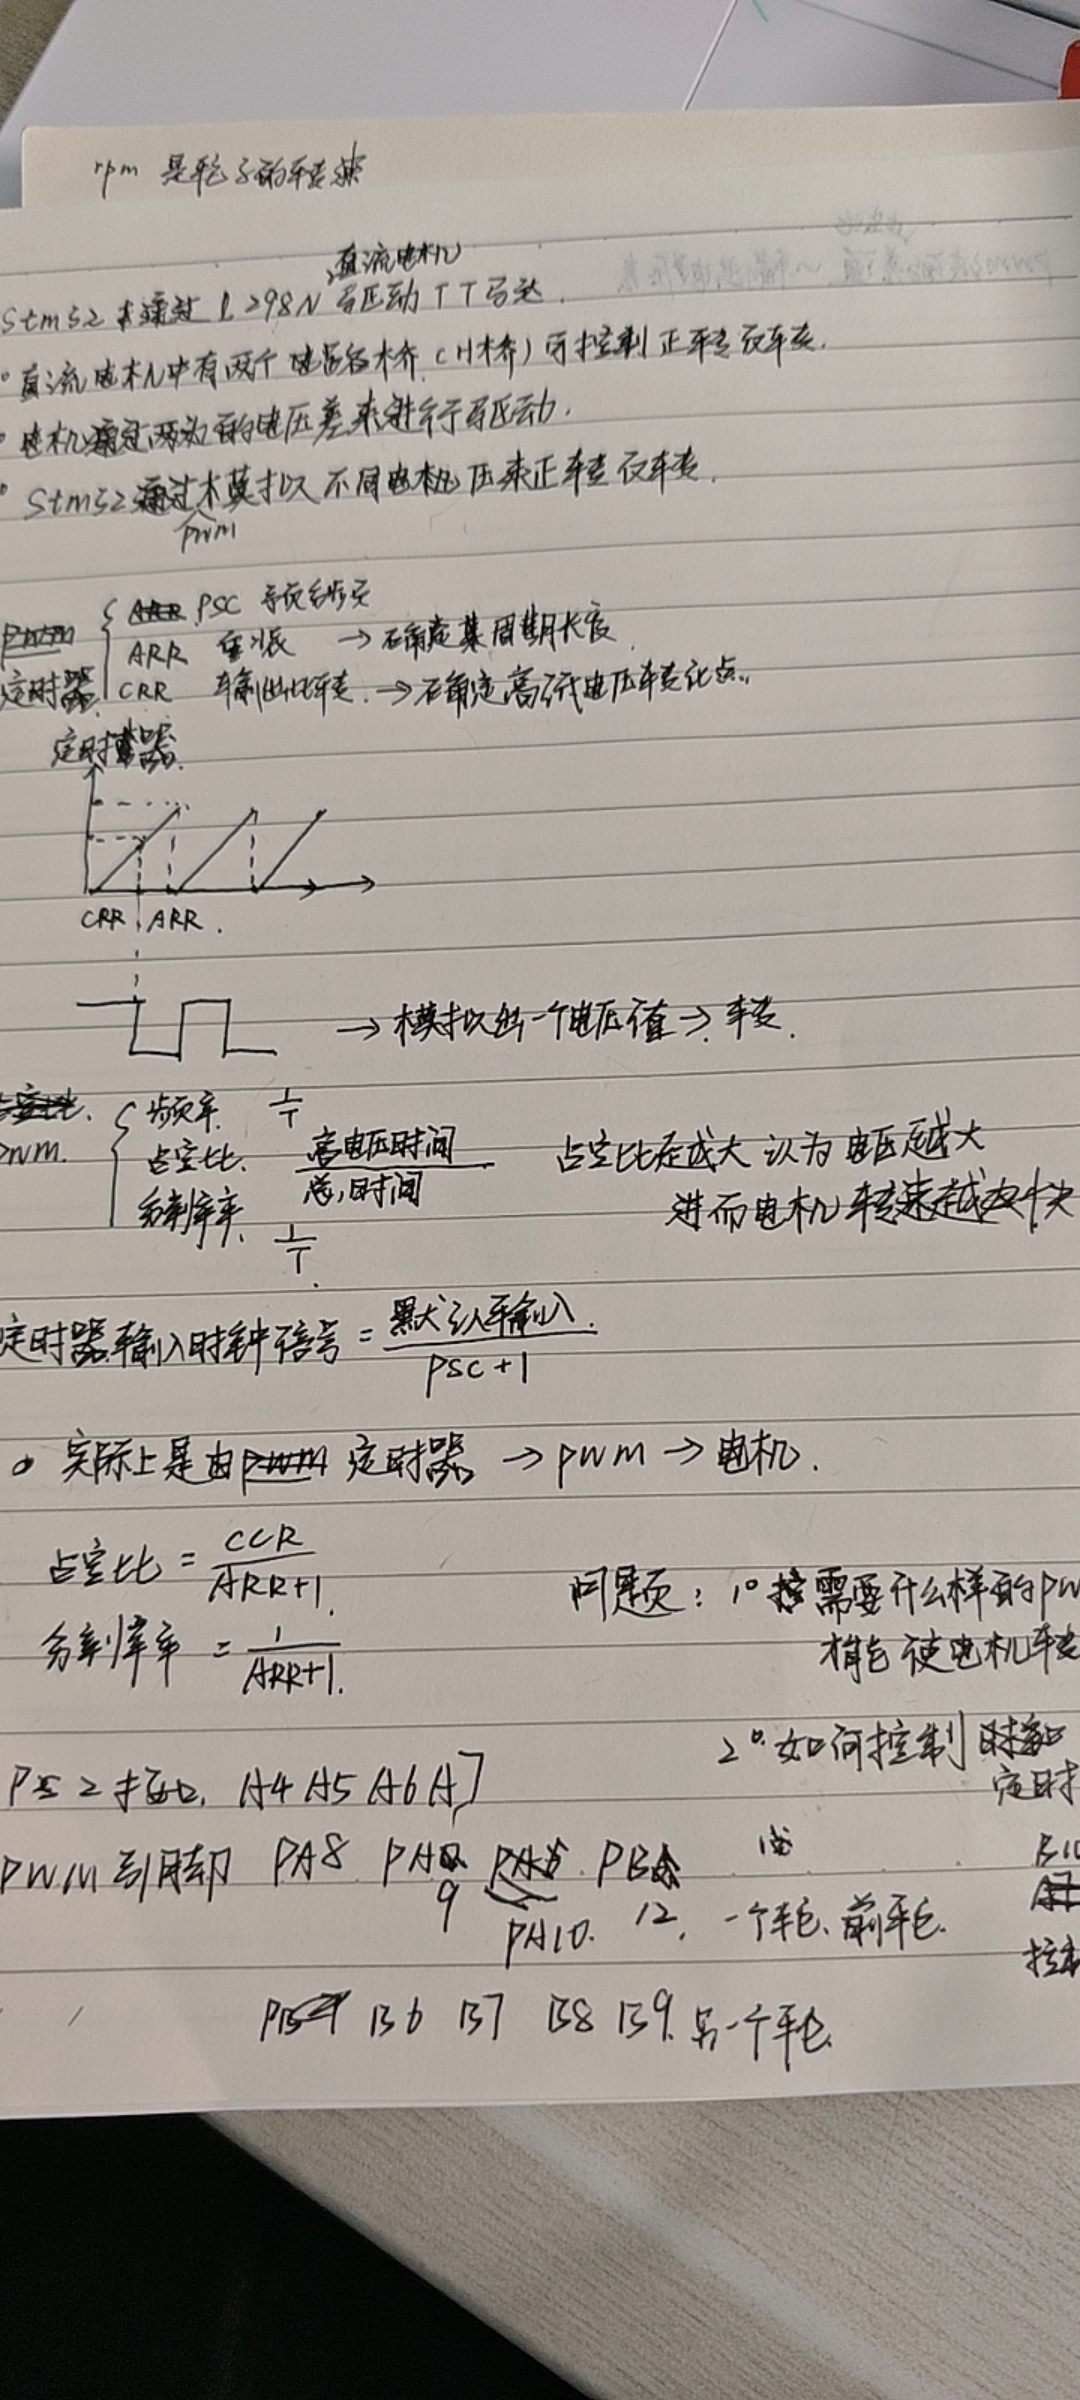 rpm 是轮子的转速
直流电机
stm32 通过 L298N 驱动TT马达.
直流电机中有两个电路桥(H桥)可控制正转反转.
电机通过两边的电压差来进行驱动.
stm32通过模拟不同电压来正转反转.
pwm
PSC 预分频
ARR 重装 → 确定其周期长度
定时器 CRR 输出比较 → 确定高低电压转化点..
定时器.
CRR ARR.
→模拟出一个电压值→.转.
频率. 1/T
PWM. 占空比. 高电压时间/总时间 占空比越大 认为电压越大
分辨率. 1/T 进而电机转速越快
定时器输入时钟信号 = 默认输入/PSC+1
实际上是由 定时器 → PWM → 电机.
占空比 = CCR/ARR+1.
分辨率 = 1/ARR+1.
问题: 1° 需要什么样的PW
才能使电机转
2°.如何控制
定时
PS2接口. A4 A5 A6 A7
PWM引脚 PA8 PA9 PA10. PB12. 一个轮、前轮.
控制
B6 B7 B8 B9. 另一个轮.